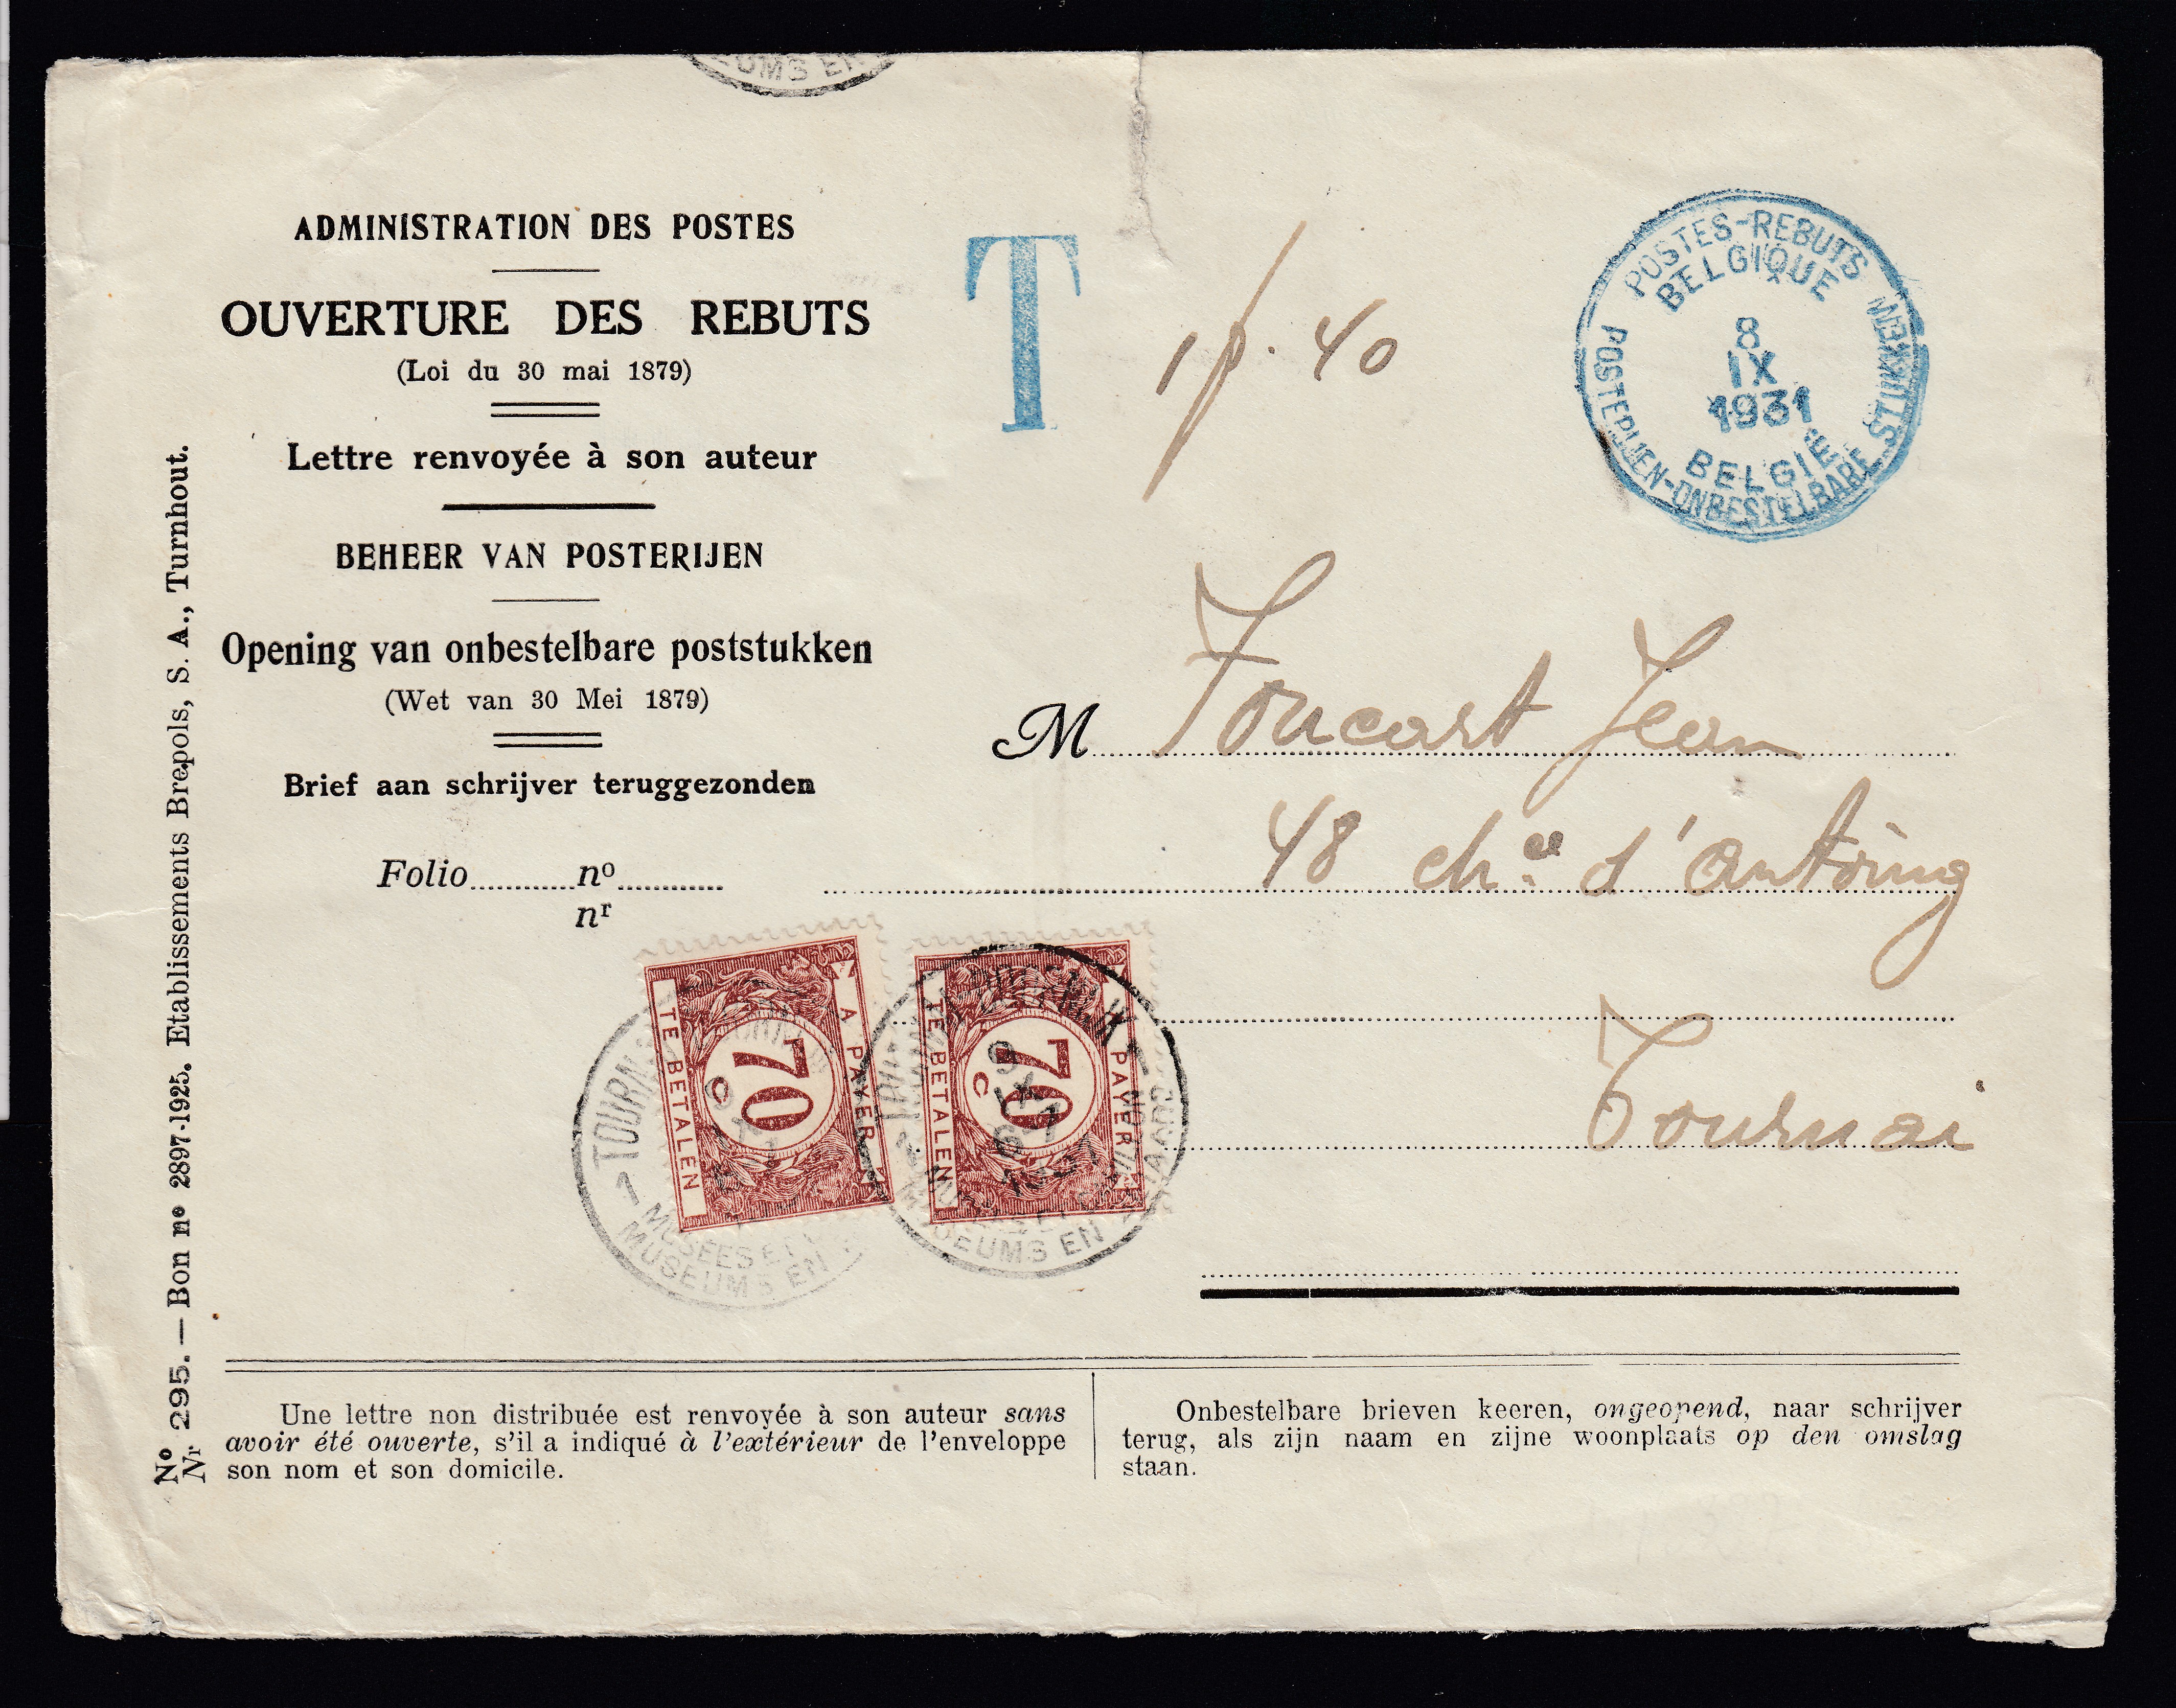 UMS EN
ADMINISTRATION DES POSTES
OUVERTURE DES REBUTS
(Loi du 30 mai 1879)
Lettre renvoyée à son auteur
BEHEER VAN POSTERIJEN
Opening van onbestelbare poststukken
(Wet van 30 Mei 1879)
Brief aan schrijver teruggezonden
Folio nº
nr
T
1 f. 40
POSTES-REBUTS
BELGIQUE
8
IX
1931
BELGIË
POSTERIJEN-ONBESTELBARE STUKKEN
M Foucart Jean
48 chée d'Antoing
Tournai
A PAYER
70
C
TE BETALEN
PAYER
70
C
TE BETALEN
TOURN
1
MUSÉES ET
MUSEUMS EN
DOORNIK
9
IX
1931
EUMS EN
STAARD
Nº 295. — Bon nº 2897-1925. Etablissements Brepols, S. A., Turnhout.
Nr
Une lettre non distribuée est renvoyée à son auteur sans
avoir été ouverte, s'il a indiqué à l'extérieur de l'enveloppe
son nom et son domicile.
Onbestelbare brieven keeren, ongeopend, naar schrijver
terug, als zijn naam en zijne woonplaats op den omslag
staan.